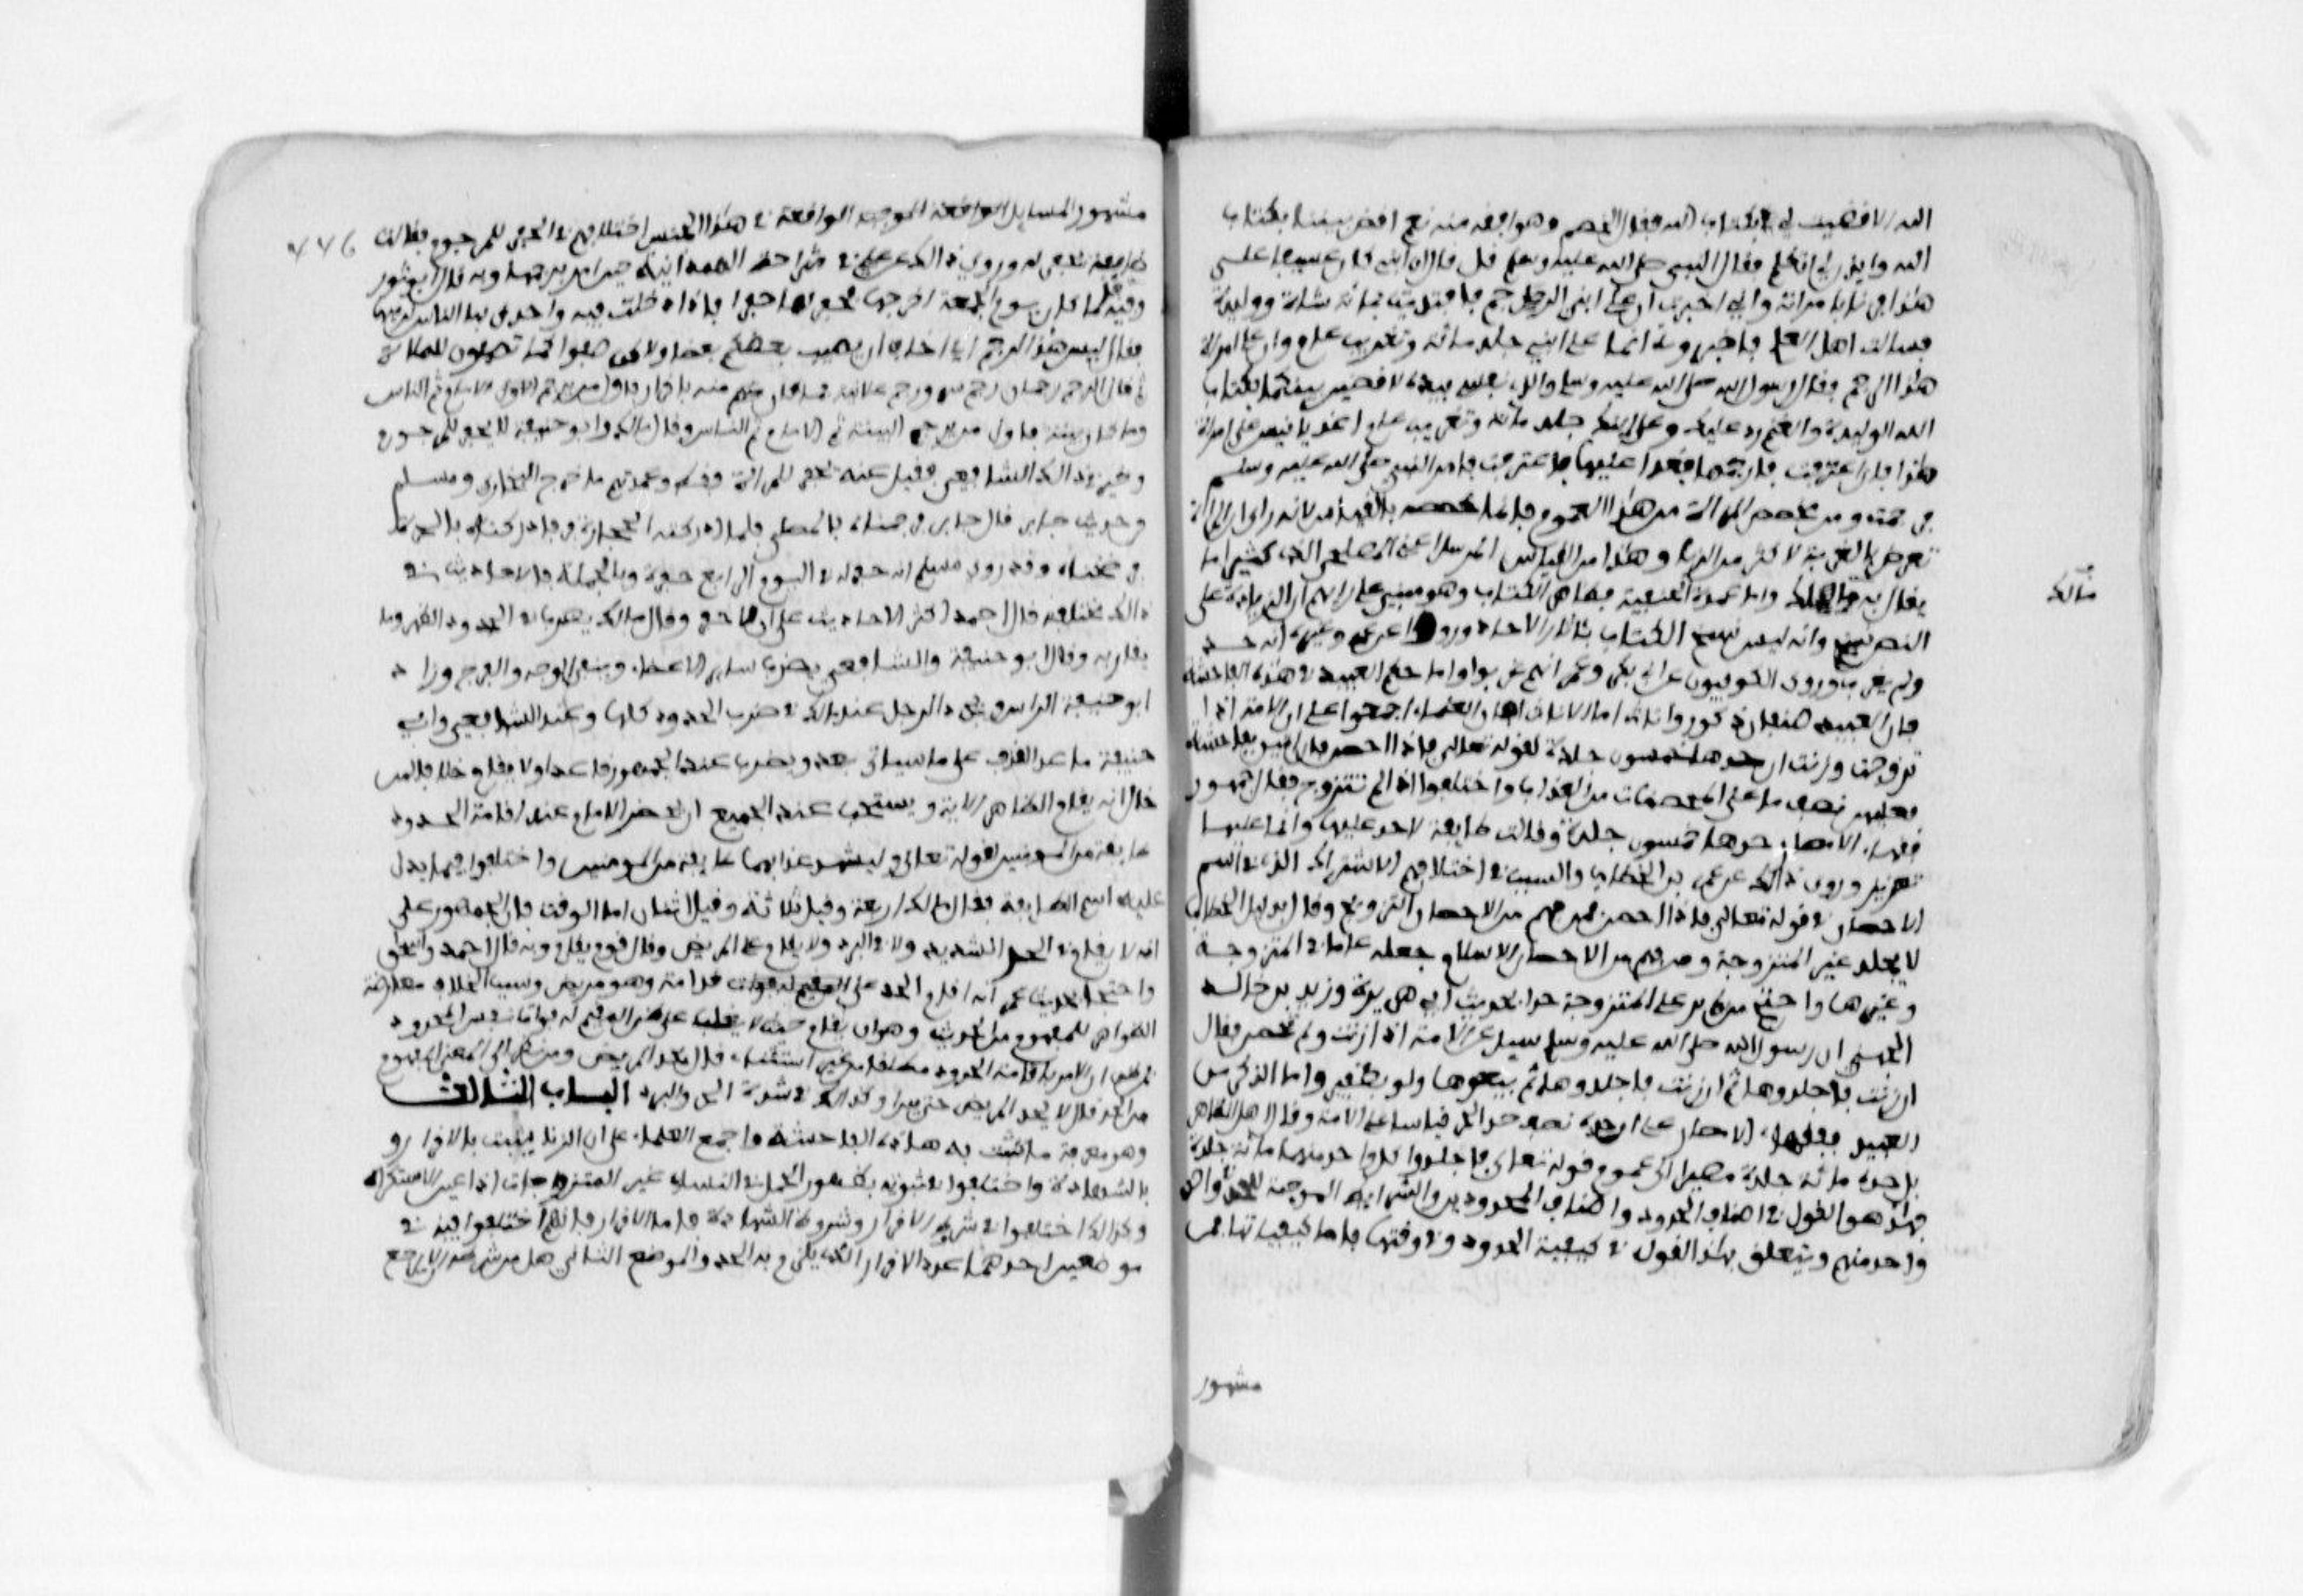 الله الا قضيت لي بكتاب الله فقال الخصم وهو افقه منه نعم اقض بيننا بكتاب
الله وايذن لي ان اتكلم فقال النبي صلى الله عليه وسلم قل قال ان ابني كان عسيفا على
هذا فزنا بامراته واني اخبرت ان على ابني الرجم فافتديت بمائة شاة ووليدة
فسالت اهل العلم فاخبروني انما على ابني جلد مائة وتغريب عام وان على امراة
هذا الرجم فقال رسول الله صلى الله عليه وسلم والذي نفسي بيده لاقضين بينكما بكتاب
الله الوليدة والغنم رد عليك وعلى ابنك جلد مائة وتغريب عام اغد يا انيس على امراة
هذا فان اعترفت فارجمها فغدا عليها فاعترفت فامر النبي صلى الله عليه وسلم
فرجمت ومن خصص المراة من هذا العموم فانما خصصه بالقياس لانه راى ان المراة
تعرض بالغربة لاكثر من الزنا وهذا من القياس المرسل اعني المصلحي الذي كثيرا ما
يقال به مالك واما عمدة الحنفية فظاهر الكتاب وهو مبني على رايهم ان الزيادة على
مالك
النص نسخ وانه ليس ينسخ الكتاب باخبار الاحاد ورووا عن عمر وغيره انه حد
ولم يغرب وروى الكوفيون عن ابي بكر وعمر انهم غربوا واما حكم العبيد في هذه الفاحشة
فان العبيد صنفان ذكور واناث اما الاناث فان العلماء اجمعوا على ان الامة اذا
تزوجت وزنت ان حدها خمسون جلدة لقوله تعالى فاذا احصن فان اتين بفاحشة
فعليهن نصف ما على المحصنات من العذاب واختلفوا اذا لم تتزوج فقال جمهور
فقهاء الامصار حدها خمسون جلدة وقالت طايفة لا حد عليها وانما عليها
تعزير وروى ذلك عن عمر بن الخطاب والسبب في اختلافهم الاشتراك الذي في اسم
الاحصان في قوله تعالى فاذا احصن فمن فهم من الاحصان التزويج وقال بدليل الخطاب
لا يجلد غير المتزوجة ومن فهم من الاحصان الاسلام جعله عاما في المتزوجة
وغيرها واحتج من لم ير على المتزوجة حدا بحديث ابي هريرة وزيد بن خالد
الجهني ان رسول الله صلى الله عليه وسلم سيل عن الامة اذا زنت ولم تحصن فقال
ان زنت فاجلدوها ثم ان زنت فاجلدوها ثم بيعوها ولو بظفير واما الذكر من
العبيد ففقهاء الامصار على ان حده نصف حد الحر قياسا على الامة وقال اهل الظاهر
بل حده مائة جلدة مصيرا الى عموم قوله تعالى فاجلدوا كل واحد منهما مائة جلدة
فهذا هو القول في اصناف الحدود واصناف المحدودين والشرايط الموجبة للحد في
واحد منهم ويتعلق بهذا القول في كيفية الحدود وفي وقتها فاما كيفيتها فمن
مشهور
٧٧٦
مشهور المسايل الواقعة في هذا الجنس اختلافهم في الحفر للمرجوم فقالت
طايفة يحفر له وروي ذلك عن علي في شراحة الهمدانية حين امر برجمها وبه قال ابو ثور
وفيه فلما كان يوم الجمعة اخرجها فحفر لها حفيرا فادخلت فيه واحدق بها الناس يرمونها
فقال ليس هذا الرجم اني اخاف ان يصيب بعضكم بعضا ولاكن صفوا كما تصفون للصلاة
ثم قال الرجم رجمان رجم سر ورجم علانية فما كان منهم منه باقرار فاول من يرجم الامام ثم الناس
وما كان ببينة فاول من يرجم البينة ثم الامام ثم الناس وقال مالك وابو حنيفة لا يحفر للمرجوم
وخير في ذلك الشافعي وقيل عنه يحفر للمراة فقط وعمدتهم ما خرج البخاري ومسلم
من حديث جابر قال جابر فرجمناه بالمصلى فلما اذلقته الحجارة فر فادركناه بالحرة
فرضخناه وقد روى مسلم انه حفر له في اليوم الرابع حفرة وبالجملة فالاحاديث في
ذلك مختلفة قال احمد اكثر الاحاديث على ان لا حفر وقال مالك يضرب في الحدود الظهر وما
يقاربه وقال ابو حنيفة والشافعي يضرب ساير الاعضاء ويتقى الوجه والفرج وزاد
ابو حنيفة الراس ويجرد الرجل عند مالك في ضرب الحدود كلها وعند الشافعي وابي
حنيفة ما عدا القذف على ما سياتي بعد ويضرب عند الجمهور قاعدا ولا يقام خلافا لمن
قال انه يقام لظاهر الاية ويستحب عند الجميع ان يحضر الامام عند اقامة الحدود
طايفة من المومنين لقوله تعالى وليشهد عذابهما طايفة من المومنين واختلفوا فيما يدل
عليه اسم الطايفة فقال مالك اربعة وقيل ثلاثة وقيل اثنان اما الوقت فان الجمهور على
انه لا يقام في الحر الشديد ولا في البرد ولا يقام على المريض وقال قوم يقام وبه قال احمد واسحق
واحتجا بحديث عمر انه اقام الحد على قدامة وهو مريض وسبب الخلاف معارضة
الظواهر للمفهوم من الحد وهو ان يقام حيث لا يغلب على ظن المقيم له فوات نفس المحدود
فمن نظر الى الامر باقامة الحدود مطلقا من غير استثناء قال يحد المريض ومن نظر الى المعنى المفهوم
من الحد قال لا يحد المريض حتى يبرا وكذلك في شدة الحر والبرد الباب الثالث
وهو معرفة ما تثبت به هذه الفاحشة واجمع العلماء على ان الزنا يثبت بالاقرار و
بالشهادة واختلفوا في ثبوته بظهور الحمل في النساء غير المتزوجات اذا ادعين الاستكراه
وكذلك اختلفوا في شروط الاقرار وشروط الشهادة فاما الاقرار فانهم اختلفوا فيه في
موضعين احدهما عدد الاقرار الذي يلزم به الحد والموضع الثاني هل من شرطه الا يرجع